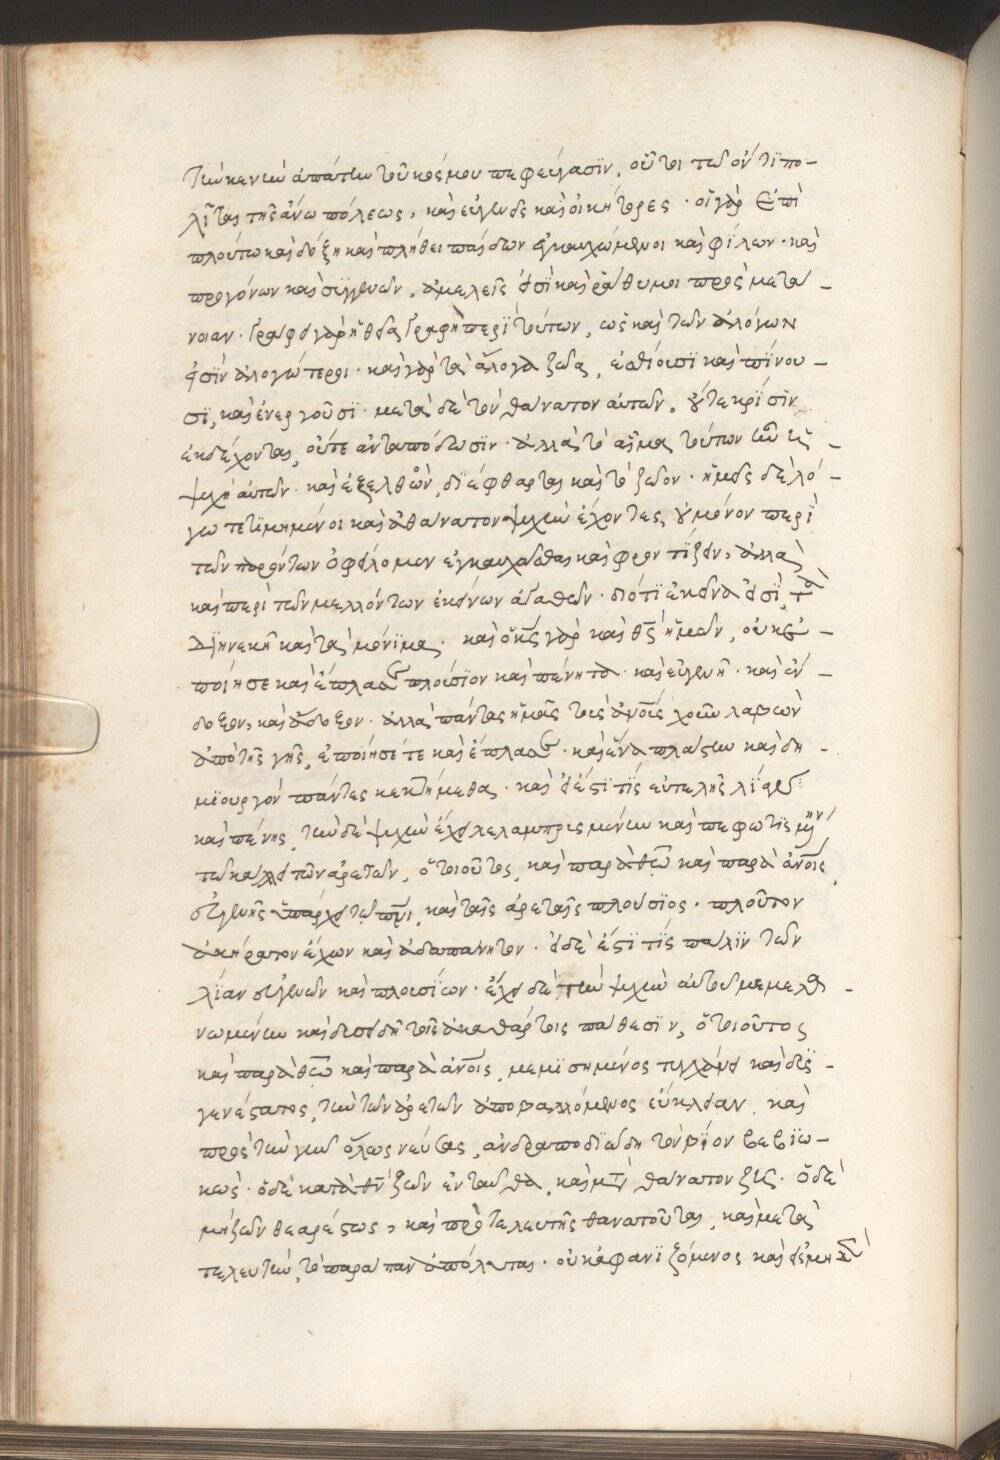 τὴν κενὴν ἀπάτην τοῦ κόσμου πεφεύγασϊν, οὗτοι τῷ ὄντϊ πο-
λῖται τῆς ἄνω πόλεως, καὶ εὐγενεῖς καὶ οἰκήτορες · οἱ γὰρ ἐπὶ
πλούτω καὶ δόξη καὶ πλήθει παίδων ἐγκαυχώμενοι καὶ φίλων · καὶ
προγόνων καὶ συγγενῶν, ἀμελεῖς εἰσὶ καὶ ράθυμοι πρὸς μετά-
νοιαν · γράφει γὰρ ἡ θεία γραφὴ περϊ τούτων, ὡς καὶ τῶν ἀλόγων
εἰσὶν ἀλογώτεροι · καὶ γὰρ τὰ ἄλογα ζῶα, ἐσθίουσϊ καὶ πίνου-
σϊ, καὶ ἐνεργοῦσϊ · μετὰ δὲ τὸν θάνατον αὐτῶν, οὔτε κρίσϊν
ἐκδέχονται, οὔτε ἀνταπόδωσϊν · ἀλλὰ τὸ αἷμα τούτων ἦν ἡ
ψυχὴ αὐτῶν · καὶ ἐξελθὸν, διέφθαρται καὶ τὸ ζῶον · ἡμεῖς δὲ λό-
γω τετϊμημένοι καὶ ἀθάνατον ψυχὴν ἔχοντες, οὐ μόνον περὶ
τῶν παρόντων ὀφείλομεν ἐγκαυχᾶσθαι καὶ φροντίζειν, ἀλλὰ
καὶ περὶ τῶν μελλόντων ἐκείνων ἀγαθῶν · διότι ἐκεῖνα εἰσὶ, τὰ
διηνεκῆ καὶ τὰ μόνϊμα · καὶ ὁ κς γὰρ καὶ θς ἡμῶν, οὐκ
ποίησε καὶ ἔπλασε πλούσϊον καὶ πένητα · καὶ εὐγενῆ · καὶ ἔν-
δοξον, καὶ ἄδοξον · ἀλλὰ πάντας ἡμᾶς τοὺς ἀνους χοῦν λαβὼν
ἀπὸ τῆς γῆς, ἐποίησέ τε καὶ ἔπλασε · καὶ ἕνα πλάστην καὶ δη-
μϊουργὸν πάντες κεκτήμεθα · καὶ εἰ ἔστϊ τὶς εὐτελὴς λίαν
καὶ πένης, τὴν δὲ ψυχὴν ἔχει λελαμπρυσμένην καὶ πεφωτισμένην
τῶ κάλλει τῶν ἀρετῶν, ὁ τοιοῦτος, καὶ παρὰ θω καὶ παρὰ ἀνοις,
εὐγενὴς ὑπάρχει τῷ τρόπῳ, καὶ ταῖς ἀρεταῖς πλούσϊος · πλοῦτον
ἀκήρατον ἔχων καὶ ἀδαπάνητον · εἰ δὲ ἔστϊ τὶς πάλϊν τῶν
λίαν εὐγενῶν καὶ πλουσίων · ἔχει δὲ τὴν ψυχὴν αὐτοῦ μεμελα-
νωμένην καὶ δυσειδῆ τοῖς ἀκαθάρτοις πάθεσϊν, ὁ τοιοῦτος
καὶ παρὰ θω καὶ παρὰ ἀνοις, μεμϊσημένος τυγχάνει καὶ δυσ-
γενέστατος, τὴν τῶν ἀρετῶν ἀποβαλλόμενος εὔκλειαν, καὶ
πρὸς τὴν γῆν ὅλως νεύσας, ἀνδραποδϊώδη τὸν βίον βεβϊω-
κὼς · ὁ δὲ κατὰ θν ζῶν ἐνταῦθα, καὶ μετὰ θάνατον ζῆ · ὁ δὲ
μὴ ζῶν θεαρέστως, καὶ πρὸ τελευτῆς θανατοῦται, καὶ μετὰ
τελευτὴν, τὸ παράπαν ἀπόλλυται · οὐκ ἀφανϊζόμενος καὶ εἰς μὴ